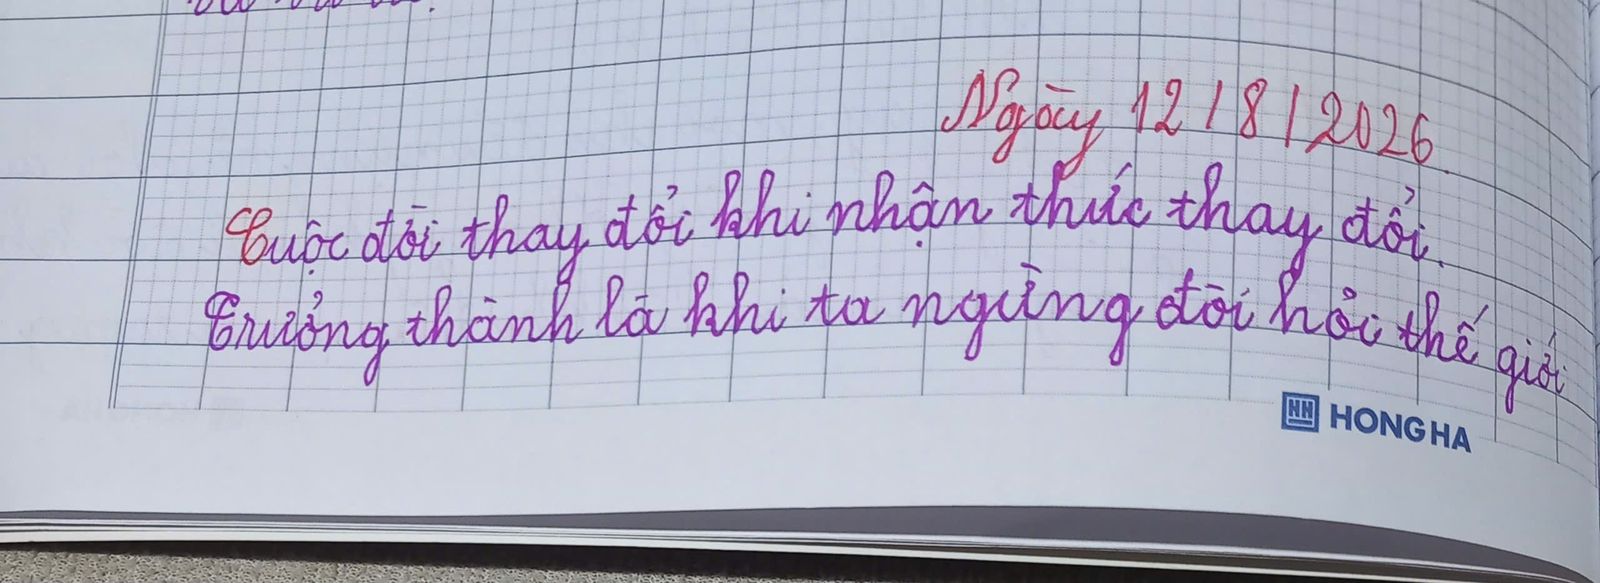 Ngày 12/8/2026.
Cuộc đời thay đổi khi nhận thức thay đổi.
Trưởng thành là khi ta ngừng đòi hỏi thế giới
HH HONG HA